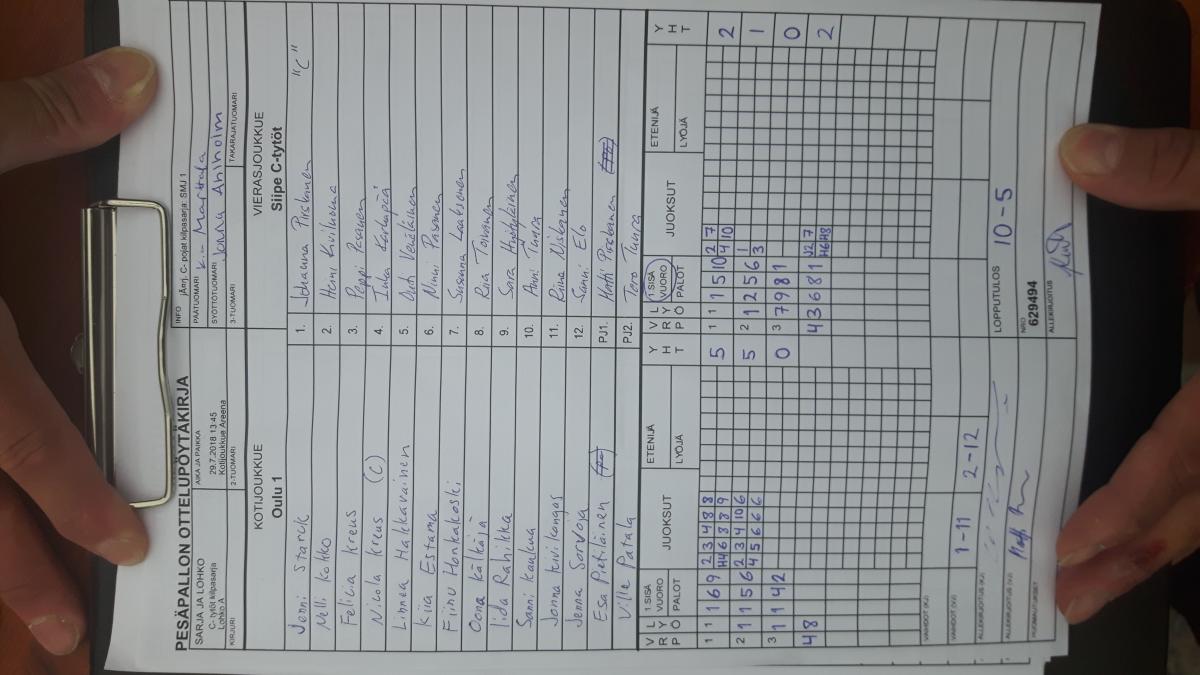 PESÄPALLON OTTELUPÖYTÄKIRJA
SARJA JA LOHKO
C- tytöt kilpasarja
Lohko A
AIKA JA PAIKKA
29.7.2018 13:45
Kotijoukkue Areena
INFO
jÄnj. C- pojat kilpasarja: SMJ 1
PÄÄTUOMARI K-M Marttala
SYÖTTÖTUOMARI Jonna Ahlholm
KIRJURI
2-TUOMARI
3-TUOMARI
TAKARAJATUOMARI
KOTIJOUKKUE
Oulu 1
VIERASJOUKKUE
Siipe C-tytöt
Jenni Starck 1. Johanna Pirskanen "C"
Melli Kokko 2. Henni Kivihuhma
Felicia Kreus 3. Peppi Pasanen
Nicola Kreus (C) 4. Inka
Linnea Hakkarainen 5. Outi Venäläinen
Kiia Estama 6. Ninni Pasanen
Fiinu Honkakoski 7. Susanna Laaksonen
Oona Kälkäjä 8. Riia Toivanen
Iida Rahikka 9. Sara
Sanni Kaukua 10. Anni Tuura
Jonna Kivikangas 11. Riina Niskanen
Jenna Sorvoja 12. Sanni Elo
Esa Pietiläinen PJ1. Matti Pirskanen
Ville Patala PJ2. Tero Tuura
V R L Y P Ö 1 SISÄ VUORO PALOT JUOKSUT ETENIJÄ LYÖJÄ Y H T V R L Y P Ö 1 SISÄ VUORO PALOT JUOKSUT ETENIJÄ LYÖJÄ Y H T
1 1 1 6 9 2 3 4 8 8 5 1 1 1 5 10 2 7 2
H4 6 8 8 9 4 10
2 1 1 5 6 2 3 4 10 6 5 2 1 2 5 6 1 1
4 5 6 6 6 3
3 1 1 4 2 0 3 7 9 8 1 0
4 8 4 3 6 8 1 J2 7 2
H6 H8
VAIHDOT (KJ) 1-11 2-12
VAIHDOT (VJ)
ALLEKIRJOITUS (KJ)
ALLEKIRJOITUS (VJ)
HUOMAUTUKSET
LOPPUTULOS 10-5
NRO
629494
ALLEKIRJOITUS